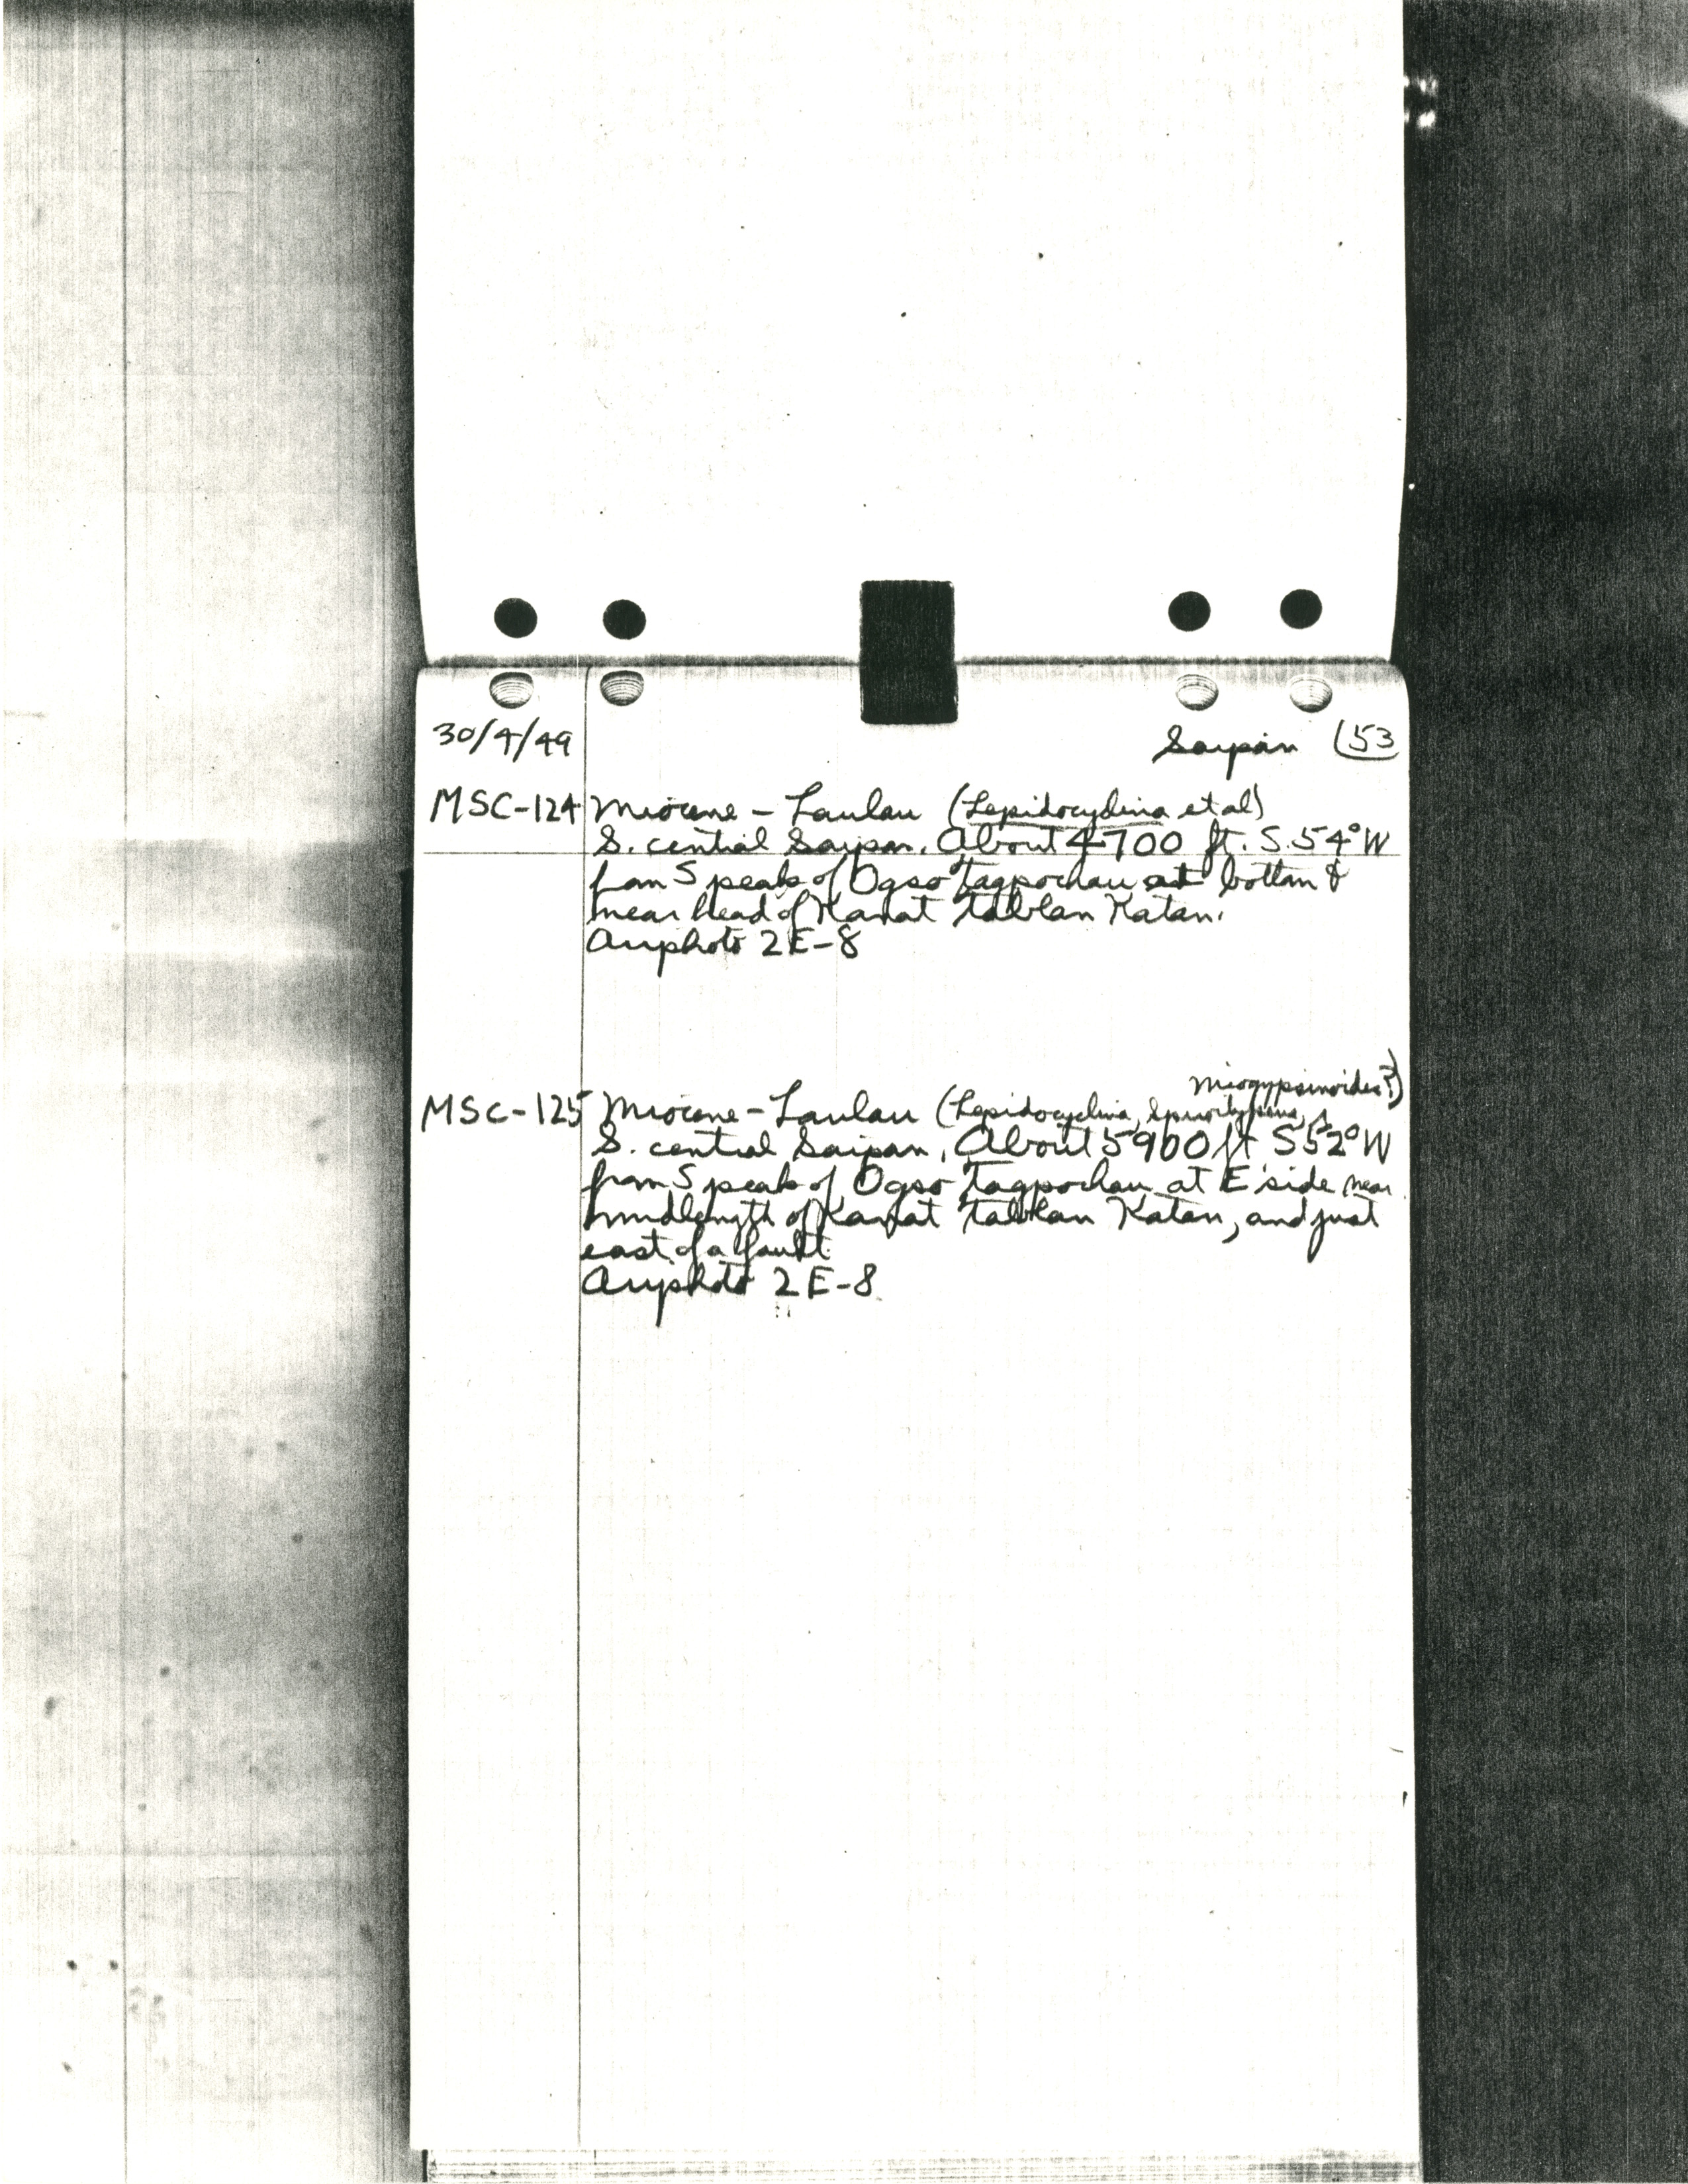 30/4/49 Saipan (53
MSC-124 Miocene - Laulau (Lepidocyclina et al)
S. central Saipan. About 4700 ft. S.54°W
from S peak of Ogso Tagpochau at bottom &
near head of Kanat tablan Katan.
Airphoto 2E-8
Miogypsinoides?)
MSC-125 Miocene - Laulau (Lepidocyclina,
S. central Saipan, About 5900 ft S52°W
from S peak of Ogso Tagpochau at E side near
midlength of Kanat tablan Katan, and just
east of a fault.
Airphoto 2E-8